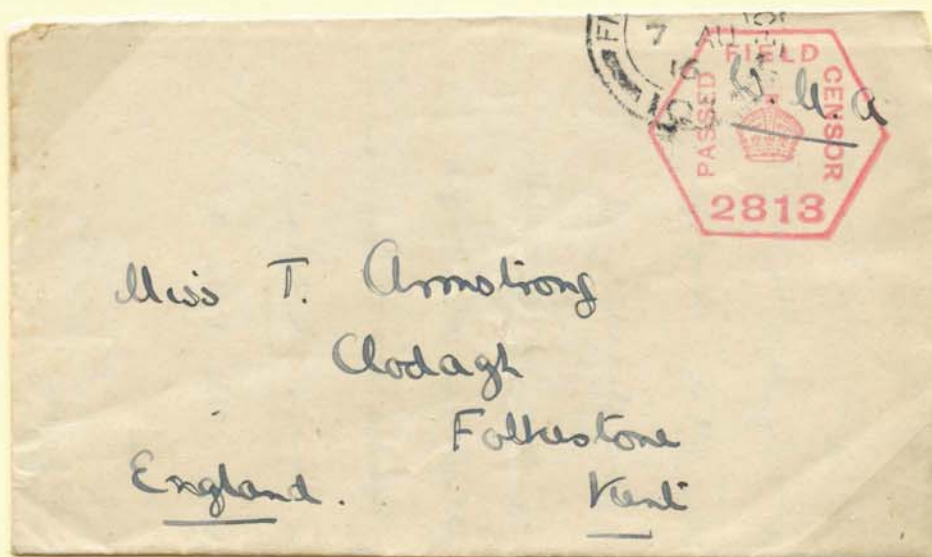 7 AU
16
PASSED FIELD CENSOR
2813
Miss T. Armstrong
Clodagh
Folkestone
England. Kent